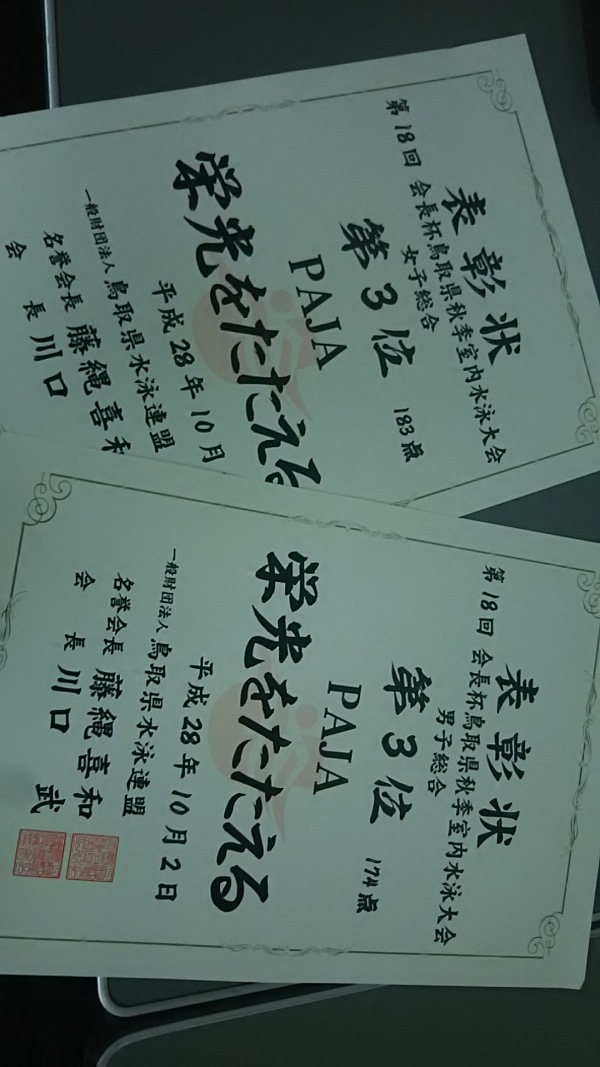 表彰状
第18回 会長杯鳥取県秋季室内水泳大会
女子総合
第3位 183点
PAJA
栄光をたたえる
平成28年10月
一般財団法人鳥取県水泳連盟
名誉会長 藤縄喜和
会長 川口
表彰状
第18回 会長杯鳥取県秋季室内水泳大会
男子総合
第3位 174点
PAJA
栄光をたたえる
平成28年10月2日
一般財団法人鳥取県水泳連盟
名誉会長 藤縄喜和
会長 川口 武